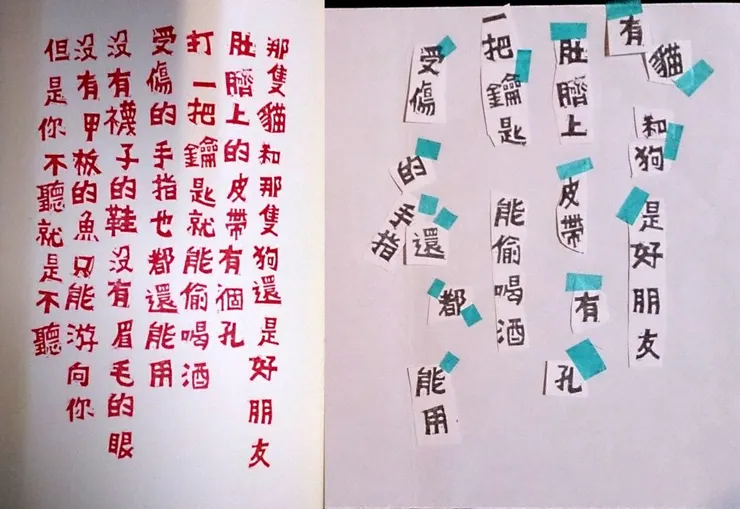 那隻貓和那隻狗還是好朋友
肚臍上的皮帶有個孔
打一把鑰匙就能偷喝酒
受傷的手指也都還能用
沒有襪子的鞋沒有眉毛的眼
沒有甲板的魚只能游向你
但是你不聽就是不聽
有貓和狗是好朋友
肚臍上皮帶有孔
一把鑰匙能偷喝酒
受傷的手指還都能用